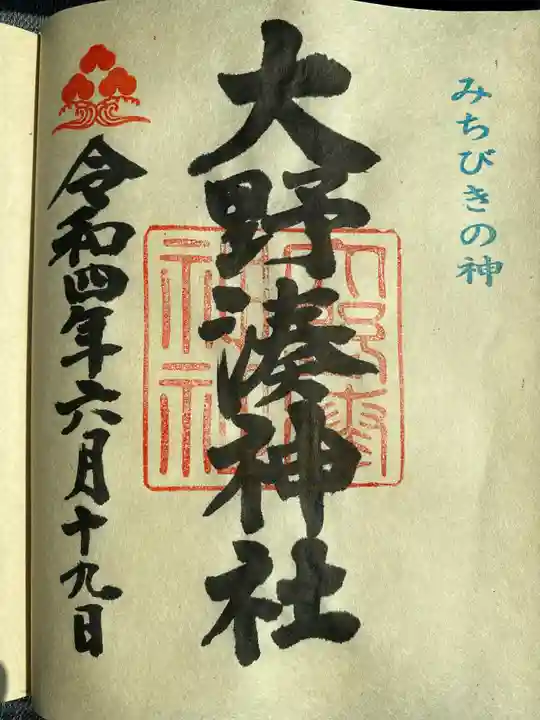 みちびきの神
大野湊神社
令和四年六月十九日